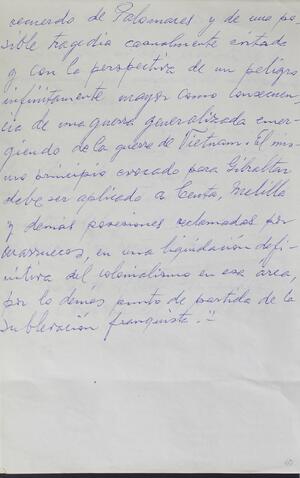 recuerdo de Palomares y de una po-
sible tragedia casualmente evitada
y con la perspectiva de un peligro
infinitamente mayor como consecuen-
cia de una guerra generalizada emer-
giendo de la guerra de Vietnam. El mis-
mo principio evocado para Gibraltar
debe ser aplicado a Ceuta, Melilla
y demás posesiones reclamadas por
Marruecos, en una liquidación defi-
nitiva del colonialismo en esa área,
por lo demás punto de partida de la
sublevación franquista."